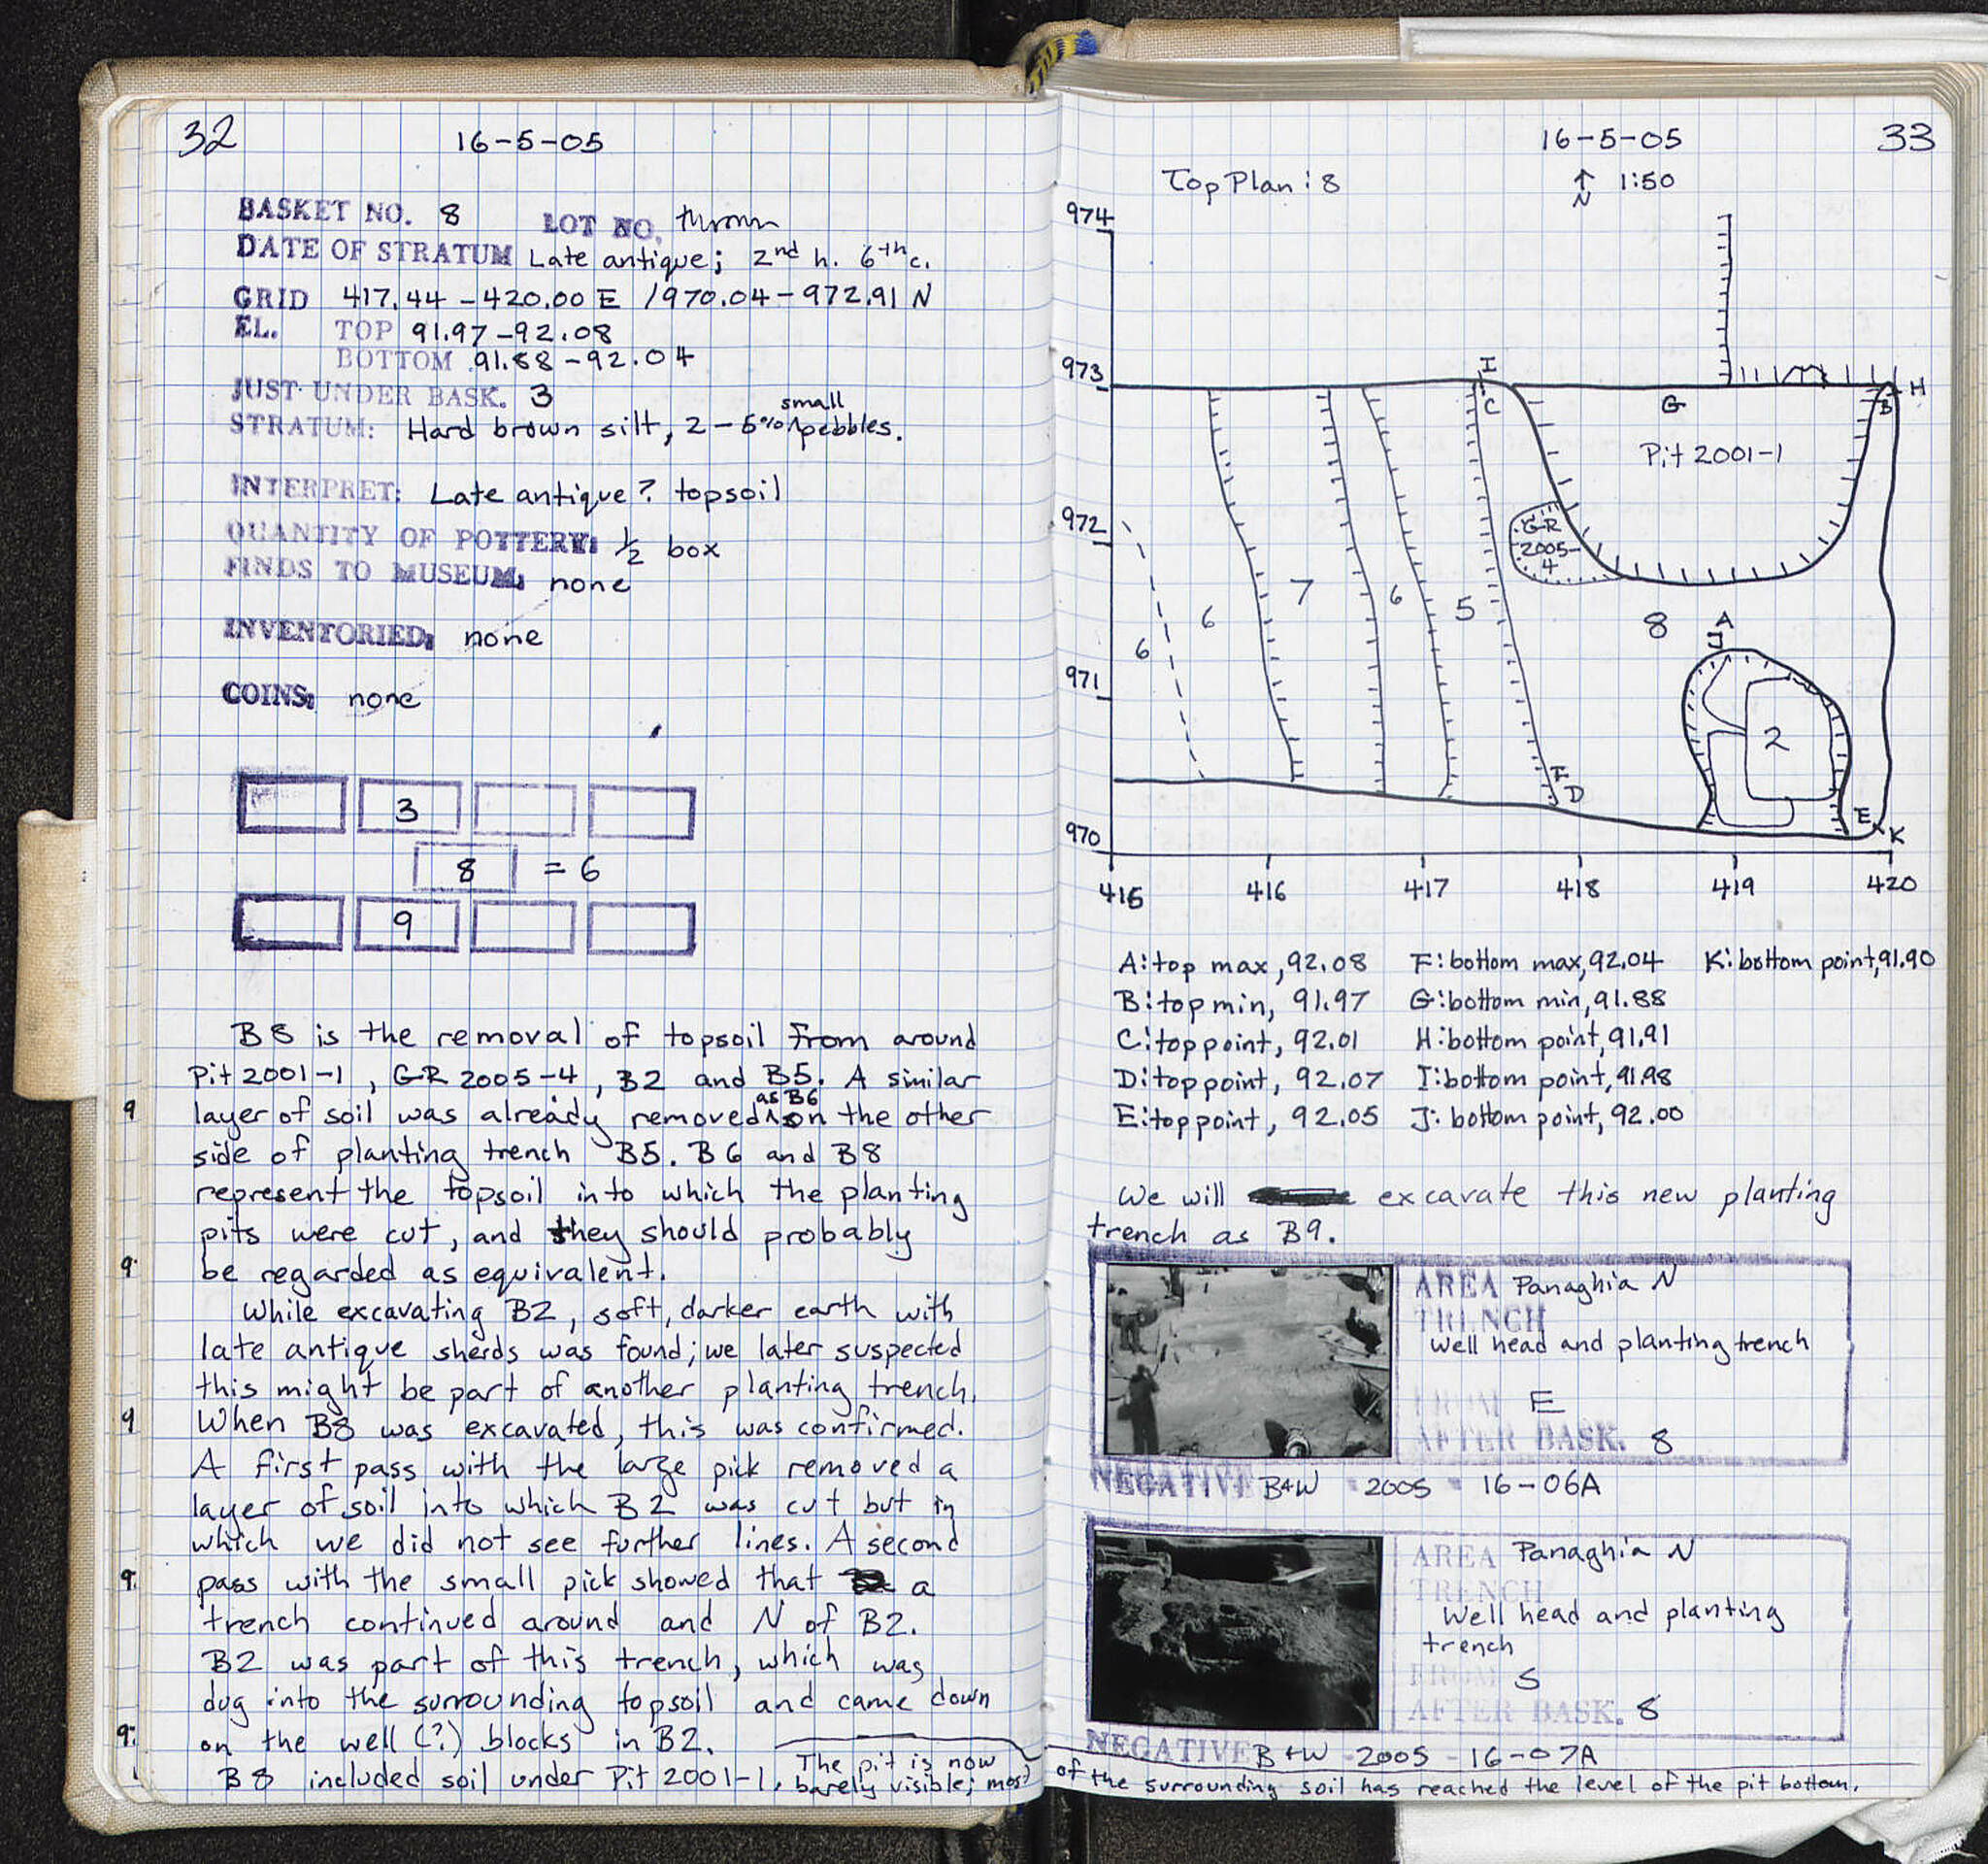 32
16-5-05
BASKET NO. 8 LOT NO. thrown
DATE OF STRATUM Late antique; 2nd h. 6th c.
GRID 417.44 - 420.00 E / 970.04 - 972.91 N
EL. TOP 91.97 - 92.08
BOTTOM 91.88 - 92.04
JUST UNDER BASK. 3
small
STRATUM: Hard brown silt, 2-5% ^ pebbles.
INTERPRET: Late antique? topsoil
QUANTITY OF POTTERY: 1/2 box
FINDS TO MUSEUM: none
INVENTORIED: none
COINS: none
3
8 = 6
9
B8 is the removal of topsoil from around
Pit 2001-1, GR 2005-4, B2 and B5. A similar
as B6
9 layer of soil was already removed ^ on the other
side of planting trench B5. B6 and B8
represent the topsoil into which the planting
pits were cut, and they should probably
9 be regarded as equivalent.
While excavating B2, soft, darker earth with
late antique sherds was found; we later suspected
this might be part of another planting trench.
9 When B8 was excavated, this was confirmed.
A first pass with the large pick removed a
layer of soil into which B2 was cut but in
which we did not see further lines. A second
9 pass with the small pick showed that a
trench continued around and N of B2.
B2 was part of this trench, which was
dug into the surrounding topsoil and came down
9 on the well (?) blocks in B2.
B8 included soil under Pit 2001-1. The pit is now
barely visible; most of the surrounding soil has reached the level of the pit bottom.
16-5-05
33
Top Plan: 8
↑ 1:50
N
974
973
I
C
G
B
H
Pit 2001-1
972
GR
2005-
4
7
6
5
6
8
A
J
6
971
2
F
D
E
K
970
415 416 417 418 419 420
A: top max, 92.08 F: bottom max, 92.04 K: bottom point, 91.90
B: top min, 91.97 G: bottom min, 91.88
C: top point, 92.01 H: bottom point, 91.91
D: top point, 92.07 I: bottom point, 91.98
E: top point, 92.05 J: bottom point, 92.00
We will excavate this new planting
trench as B9.
AREA Panaghia N
TRENCH
Well head and planting trench
FROM E
AFTER BASK. 8
NEGATIVE B+W - 2005 - 16-06A
AREA Panaghia N
TRENCH
Well head and planting
trench
FROM S
AFTER BASK. 8
NEGATIVE B+W - 2005 - 16-07A